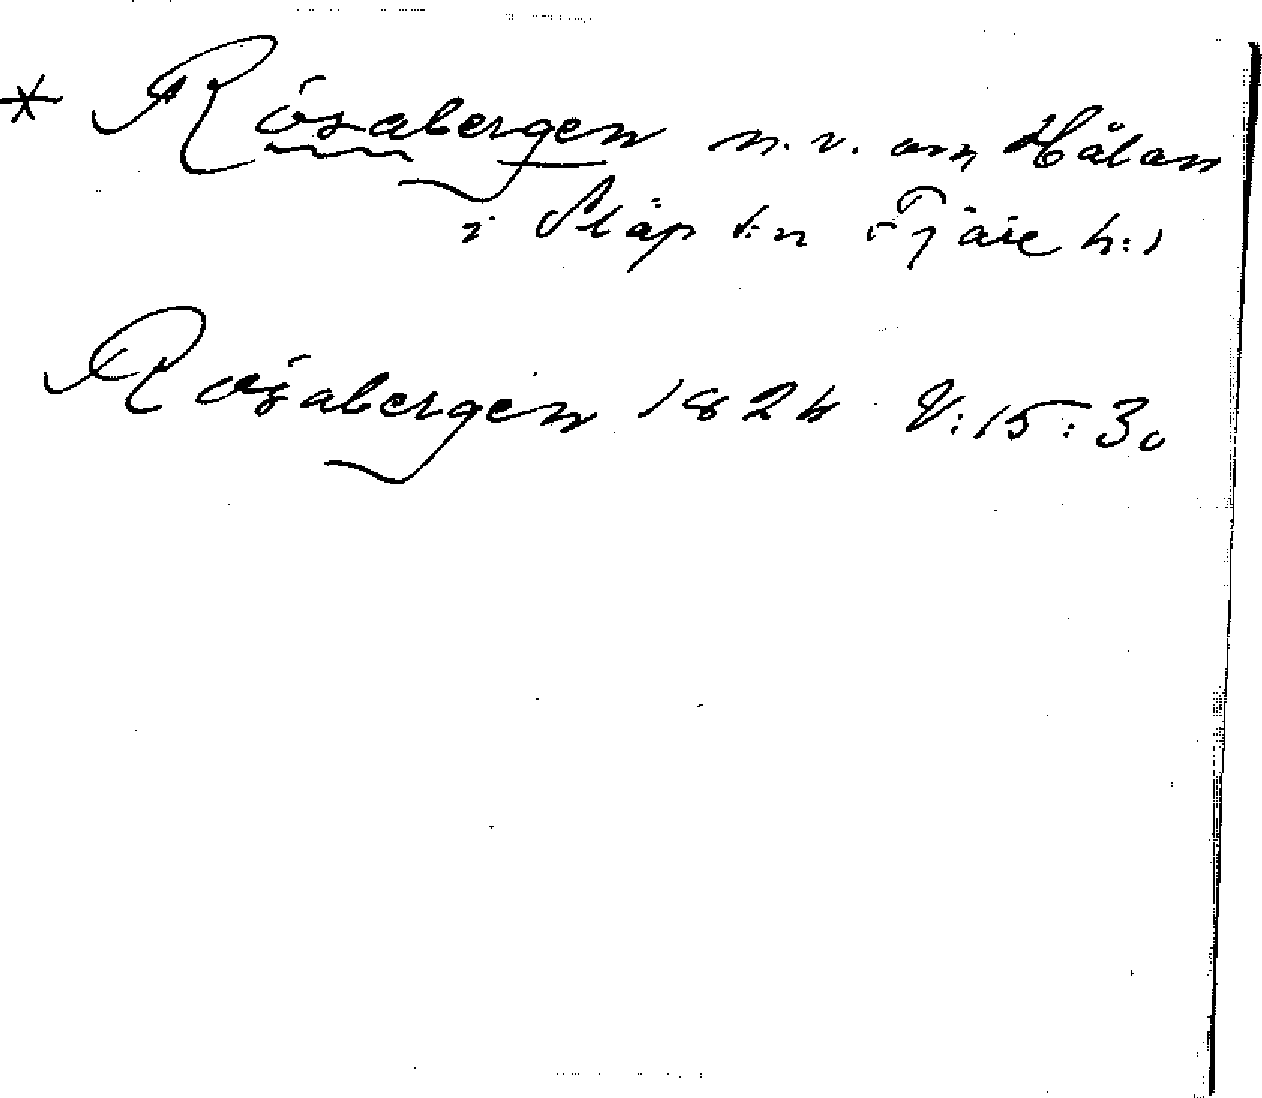 * Rösabergen n.v. om Hålan
i Släp s:n Fjäre h:d
Rösabergen 1824 V:15:30